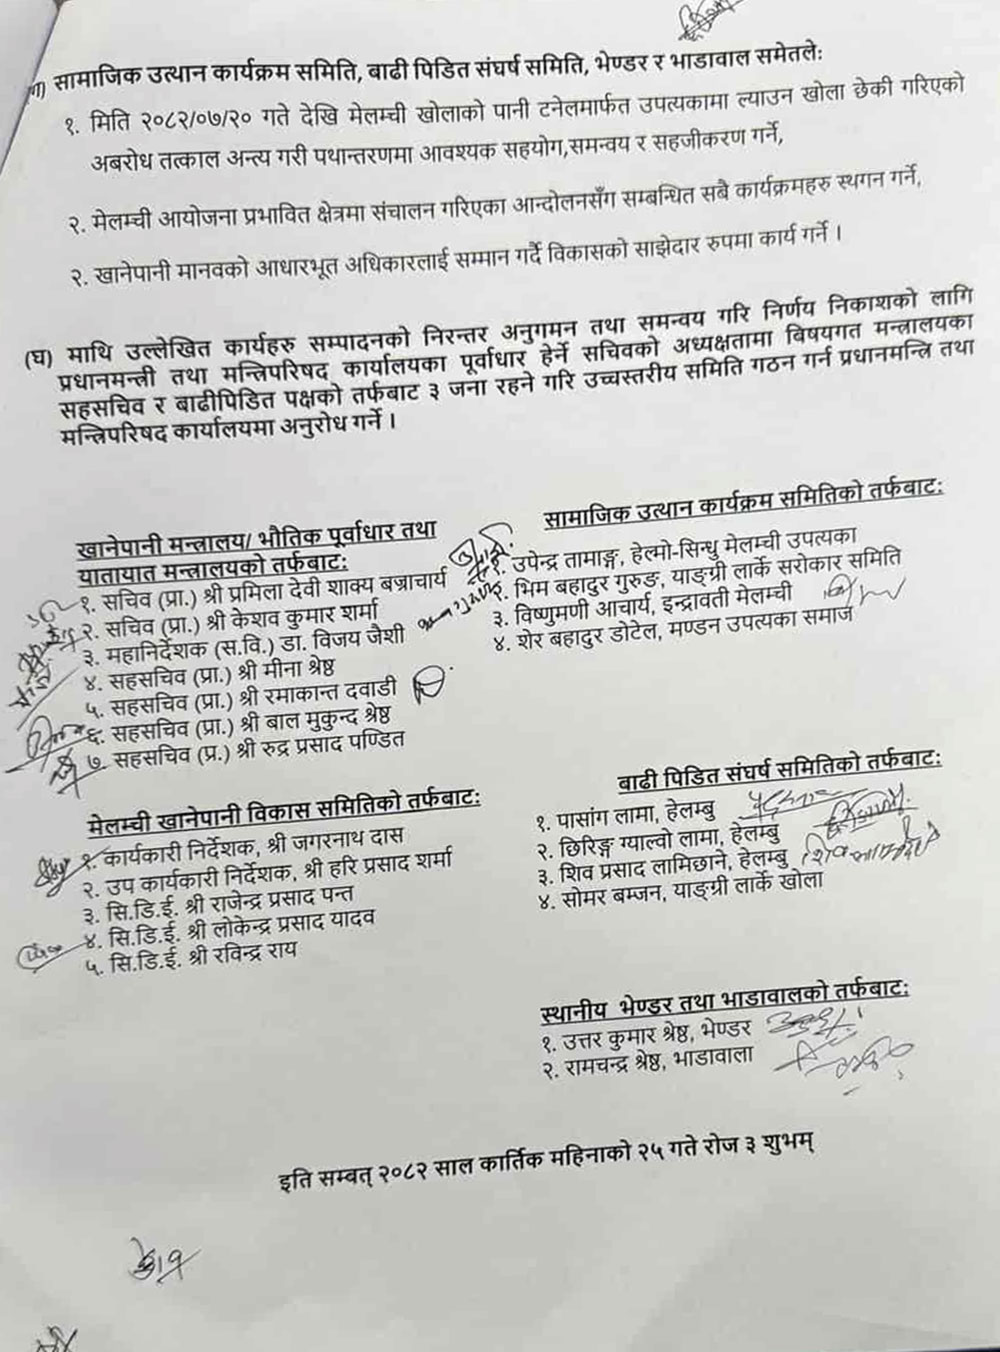 ग) सामाजिक उत्थान कार्यक्रम समिति, बाढी पिडित संघर्ष समिति, भेण्डर र भाडावाल समेतले:
१. मिति २०८२/०७/२० गते देखि मेलम्ची खोलाको पानी टनेलमार्फत उपत्यकामा ल्याउन खोला छेकी गरिएको
अबरोध तत्काल अन्त्य गरी पथान्तरणमा आवश्यक सहयोग,समन्वय र सहजीकरण गर्ने,
२. मेलम्ची आयोजना प्रभावित क्षेत्रमा संचालन गरिएका आन्दोलनसँग सम्बन्धित सबै कार्यक्रमहरु स्थगन गर्ने,
२. खानेपानी मानवको आधारभूत अधिकारलाई सम्मान गर्दै विकासको साझेदार रुपमा कार्य गर्ने ।
(घ) माथि उल्लेखित कार्यहरु सम्पादनको निरन्तर अनुगमन तथा समन्वय गरि निर्णय निकाशको लागि
प्रधानमन्त्री तथा मन्त्रिपरिषद कार्यालयका पूर्वाधार हेर्ने सचिवको अध्यक्षतामा बिषयगत मन्त्रालयका
सहसचिव र बाढीपिडित पक्षको तर्फबाट ३ जना रहने गरि उच्चस्तरीय समिति गठन गर्न प्रधानमन्त्रि तथा
मन्त्रिपरिषद कार्यालयमा अनुरोध गर्ने ।
खानेपानी मन्त्रालय/ भौतिक पूर्वाधार तथा
यातायात मन्त्रालयको तर्फबाट:
१. सचिव (प्रा.) श्री प्रमिला देवी शाक्य बज्राचार्य
२. सचिव (प्रा.) श्री केशव कुमार शर्मा
३. महानिर्देशक (स.वि.) डा. विजय जैशी
४. सहसचिव (प्रा.) श्री मीना श्रेष्ठ
५. सहसचिव (प्रा.) श्री रमाकान्त दवाडी
६. सहसचिव (प्रा.) श्री बाल मुकुन्द श्रेष्ठ
७. सहसचिव (प्र.) श्री रुद्र प्रसाद पण्डित
सामाजिक उत्थान कार्यक्रम समितिको तर्फबाट:
१. उपेन्द्र तामाङ्ग, हेल्मो-सिन्धु मेलम्ची उपत्यका
२. भिम बहादुर गुरुङ, याङ्ग्री लार्के सरोकार समिति
३. विष्णुमणी आचार्य, इन्द्रावती मेलम्ची
४. शेर बहादुर डोटेल, मण्डन उपत्यका समाज
मेलम्ची खानेपानी विकास समितिको तर्फबाट:
१. कार्यकारी निर्देशक, श्री जगरनाथ दास
२. उप कार्यकारी निर्देशक, श्री हरि प्रसाद शर्मा
३. सि.डि.ई. श्री राजेन्द्र प्रसाद पन्त
४. सि.डि.ई. श्री लोकेन्द्र प्रसाद यादव
५. सि.डि.ई. श्री रविन्द्र राय
बाढी पिडित संघर्ष समितिको तर्फबाट:
१. पासांग लामा, हेलम्बु
२. छिरिङ्ग ग्याल्वो लामा, हेलम्बु
३. शिव प्रसाद लामिछाने, हेलम्बु
४. सोमर बम्जन, याङ्ग्री लार्के खोला
स्थानीय भेण्डर तथा भाडावालको तर्फबाट:
१. उत्तर कुमार श्रेष्ठ, भेण्डर
२. रामचन्द्र श्रेष्ठ, भाडावाला
इति सम्बत् २०८२ साल कार्तिक महिनाको २५ गते रोज ३ शुभम्